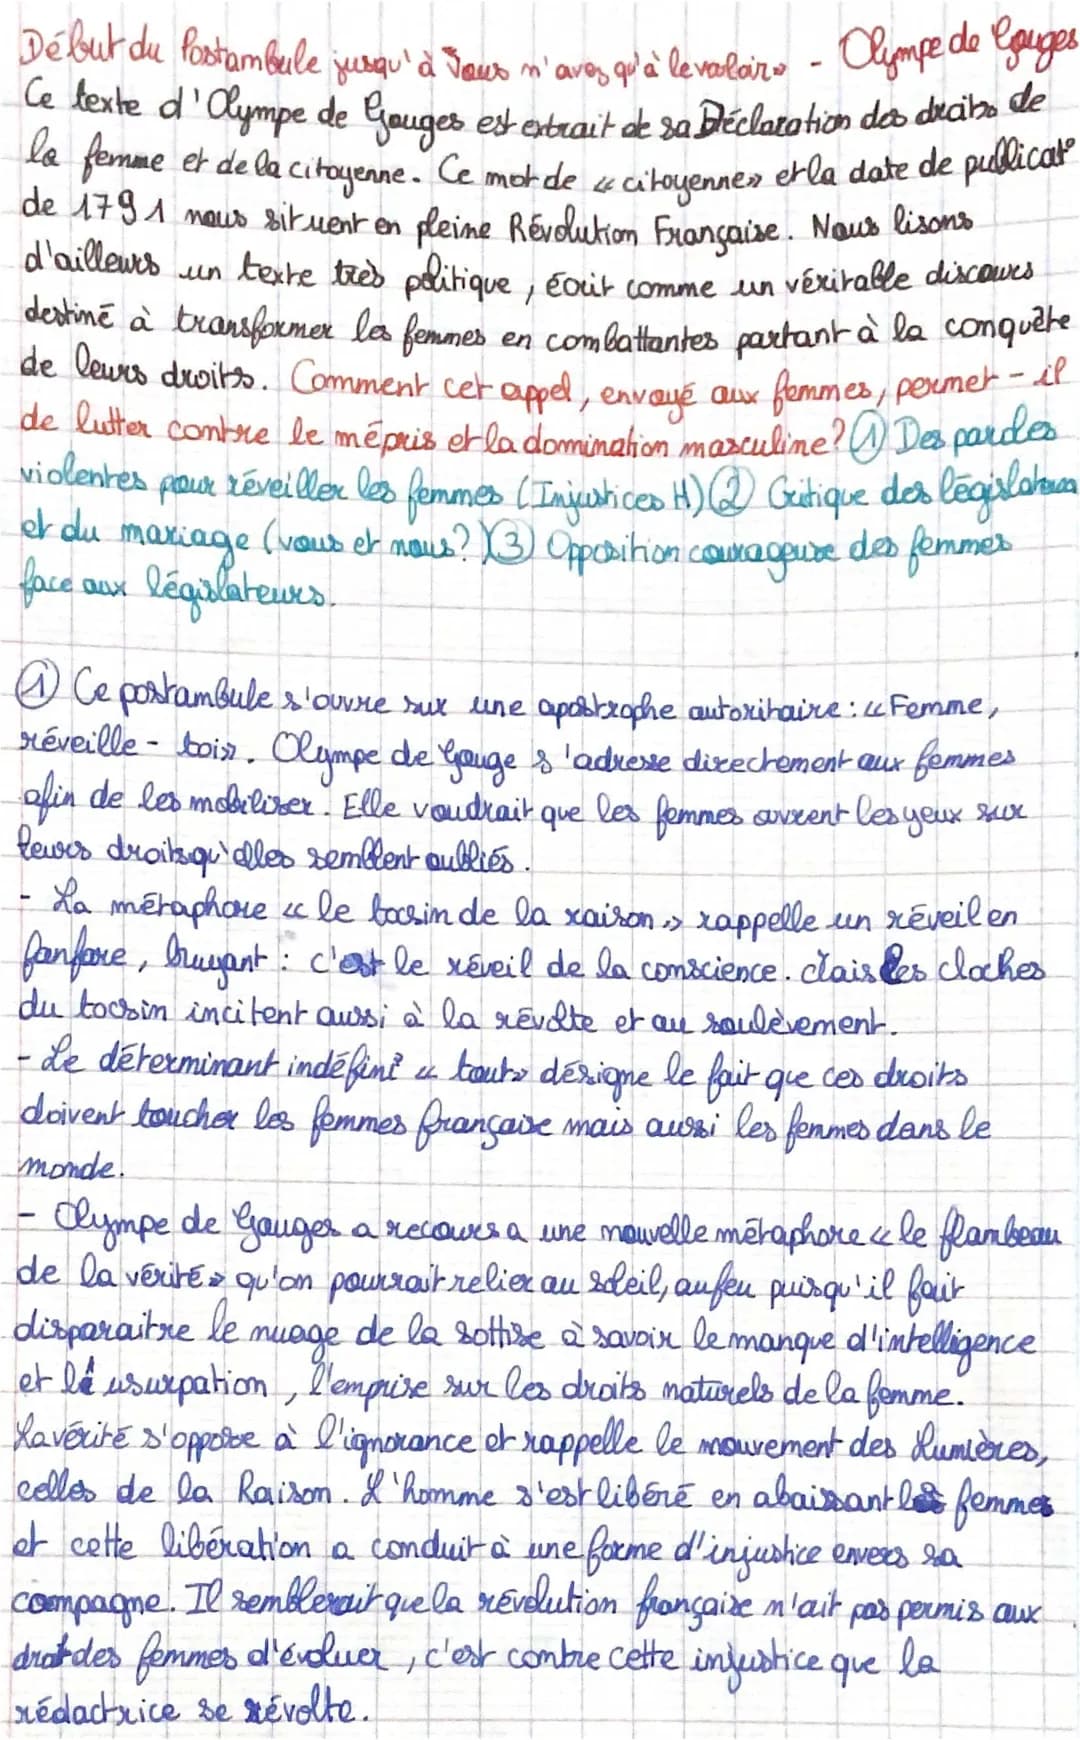 Début du Postambule jusqu'à Vous n'avez qu'à le vouloir» - Olympe de Gouges
Ce texte d'Olympe de Gouges est extrait de sa Déclaration des droits de
la femme et de la citoyenne. Ce mot de «citoyenne» et la date de publicat°
de 1791 nous situent en pleine Révolution Française. Nous lisons
d'ailleurs un texte très politique, écrit comme un véritable discours
destiné à transformer les femmes en combattantes partant à la conquête
de leurs droits. Comment cet appel, envoyé aux femmes, permet-il
de lutter contre le mépris et la domination masculine? ① Des paroles
violentes pour réveiller les femmes (Injustices H) ② Critique des législateurs
et du mariage (vous et nous?) ③ Opposition courageuse des femmes
face aux législateurs.
① Ce postambule s'ouvre sur une apostrophe autoritaire: «Femme,
réveille-toi». Olympe de Gouge s'adresse directement aux femmes
afin de les mobiliser. Elle voudrait que les femmes ouvrent les yeux sur
leurs droits qu'elles semblent oubliés.
- La métaphore «le tocsin de la raison» rappelle un réveil en
fanfare, bruyant: c'est le réveil de la conscience. Mais les cloches
du tocsin incitent aussi à la révolte et au soulèvement.
- Le déterminant indéfini «tout» désigne le fait que ces droits
doivent toucher les femmes française mais aussi les femmes dans le
monde.
- Olympe de Gouges a recours a une nouvelle métaphore «le flambeau
de la vérité» qu'on pourrait relier au soleil, au feu puisqu'il fait
disparaitre le nuage de la sottise à savoir le manque d'intelligence
et l'usurpation, l'emprise sur les droits naturels de la femme.
La vérité s'oppose à l'ignorance et rappelle le mouvement des Lumières,
celles de la Raison. L'homme s'est libéré en abaissant les femmes
et cette libération a conduit à une forme d'injustice envers sa
compagne. Il semblerait que la révolution française n'ait pas permis aux
droit des femmes d'évoluer, c'est contre cette injustice que la
rédactrice se révolte.